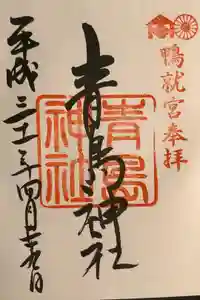 鴨就宮奉拝
青島神社
青島
神社
平成三十一年四月九日